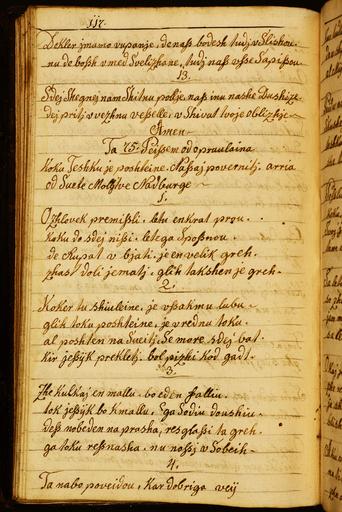 117.
Dekler jmamo vupanje, denaß bodesh tudj vSlishov.
nu de bosh vmed Svelizhane, tudj naß vße Sapißou.
13.
Sdej Shegnej nam Shitnu polje, naß inu naske Dushize
dej pritj vvezhnu veßelle, vShivat tvoje oblizhje
Amen
Ta 75. Peißem od opraulaina
Koku Teshku je poshteine. Naßaj povernitj. arria
od Suete Molitve Nadburge
1.
O zhlovek premißli. letu enkrat prou.
koku do sdej nißi. letega Spoßnou
de Krupat v bjati. je en velik greh.
zhast doli jematj. glih takshen je greh.
2.
Koker tu shiuleine, je vßakmu lubu
glih toku poshteine, je vrednu toku.
al poshten na Suetj. Se more sdej bat.
kir jeßik prekletj. bol pizhi kod gadt.
3.
Zhe kulkaj en mallu. bo eden falliu.
tok jeßik bo hmallu. ga Sodiu douskiu.
deß nobeden na praska, resglaßi ta greh.
ga toku reßnaska. nu noßsj vSobeih
4.
Ta nabo poveidou, Kar dobriga veij